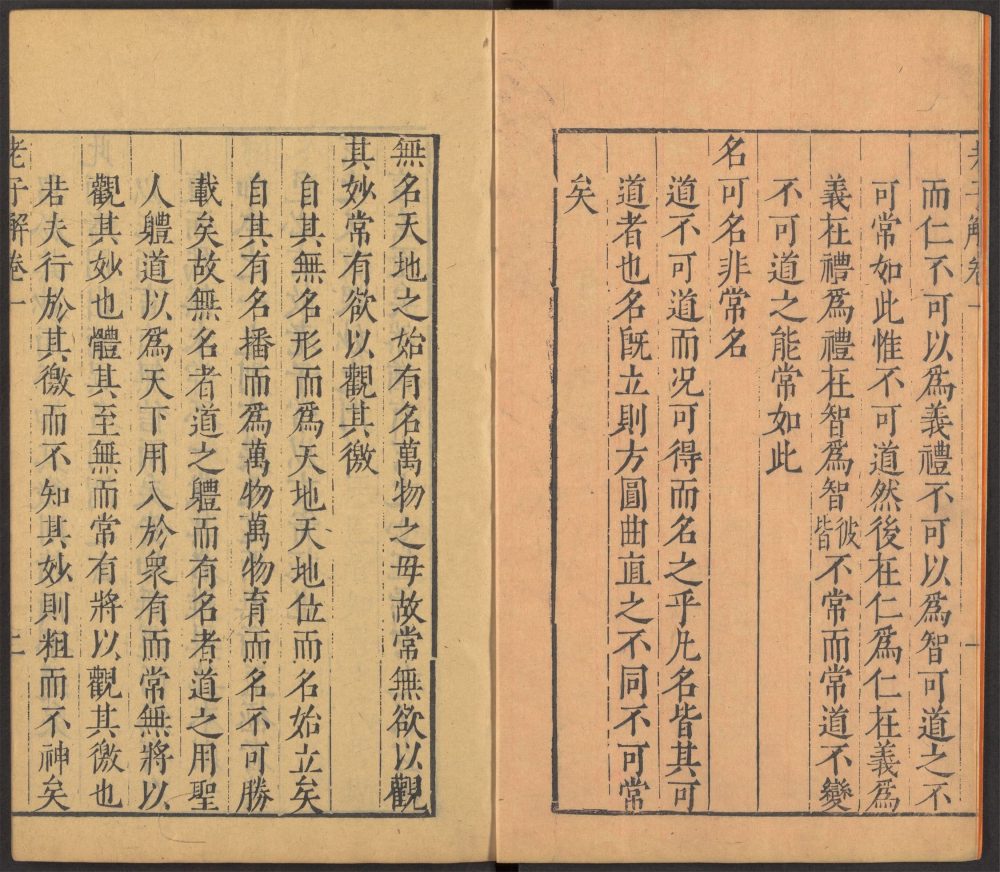 老子解卷一
一
而仁不可以爲義禮不可以爲智可道之不
可常如此惟不可道然後在仁爲仁在義爲
義在禮爲禮在智爲智彼皆不常而常道不變
不可道之能常如此
名可名非常名
道不可道而况可得而名之乎凡名皆其可
道者也名旣立則方圓曲直之不同不可常
矣
無名天地之始有名萬物之母故常無欲以觀
其妙常有欲以觀其徼
自其無名形而爲天地天地位而名始立矣
自其有名播而爲萬物萬物育而名不可勝
載矣故無名者道之軆而有名者道之用聖
人軆道以爲天下用入於衆有而常無將以
觀其妙也體其至無而常有將以觀其徼也
若夫行於其徼而不知其妙則粗而不神矣
老子解卷一
二